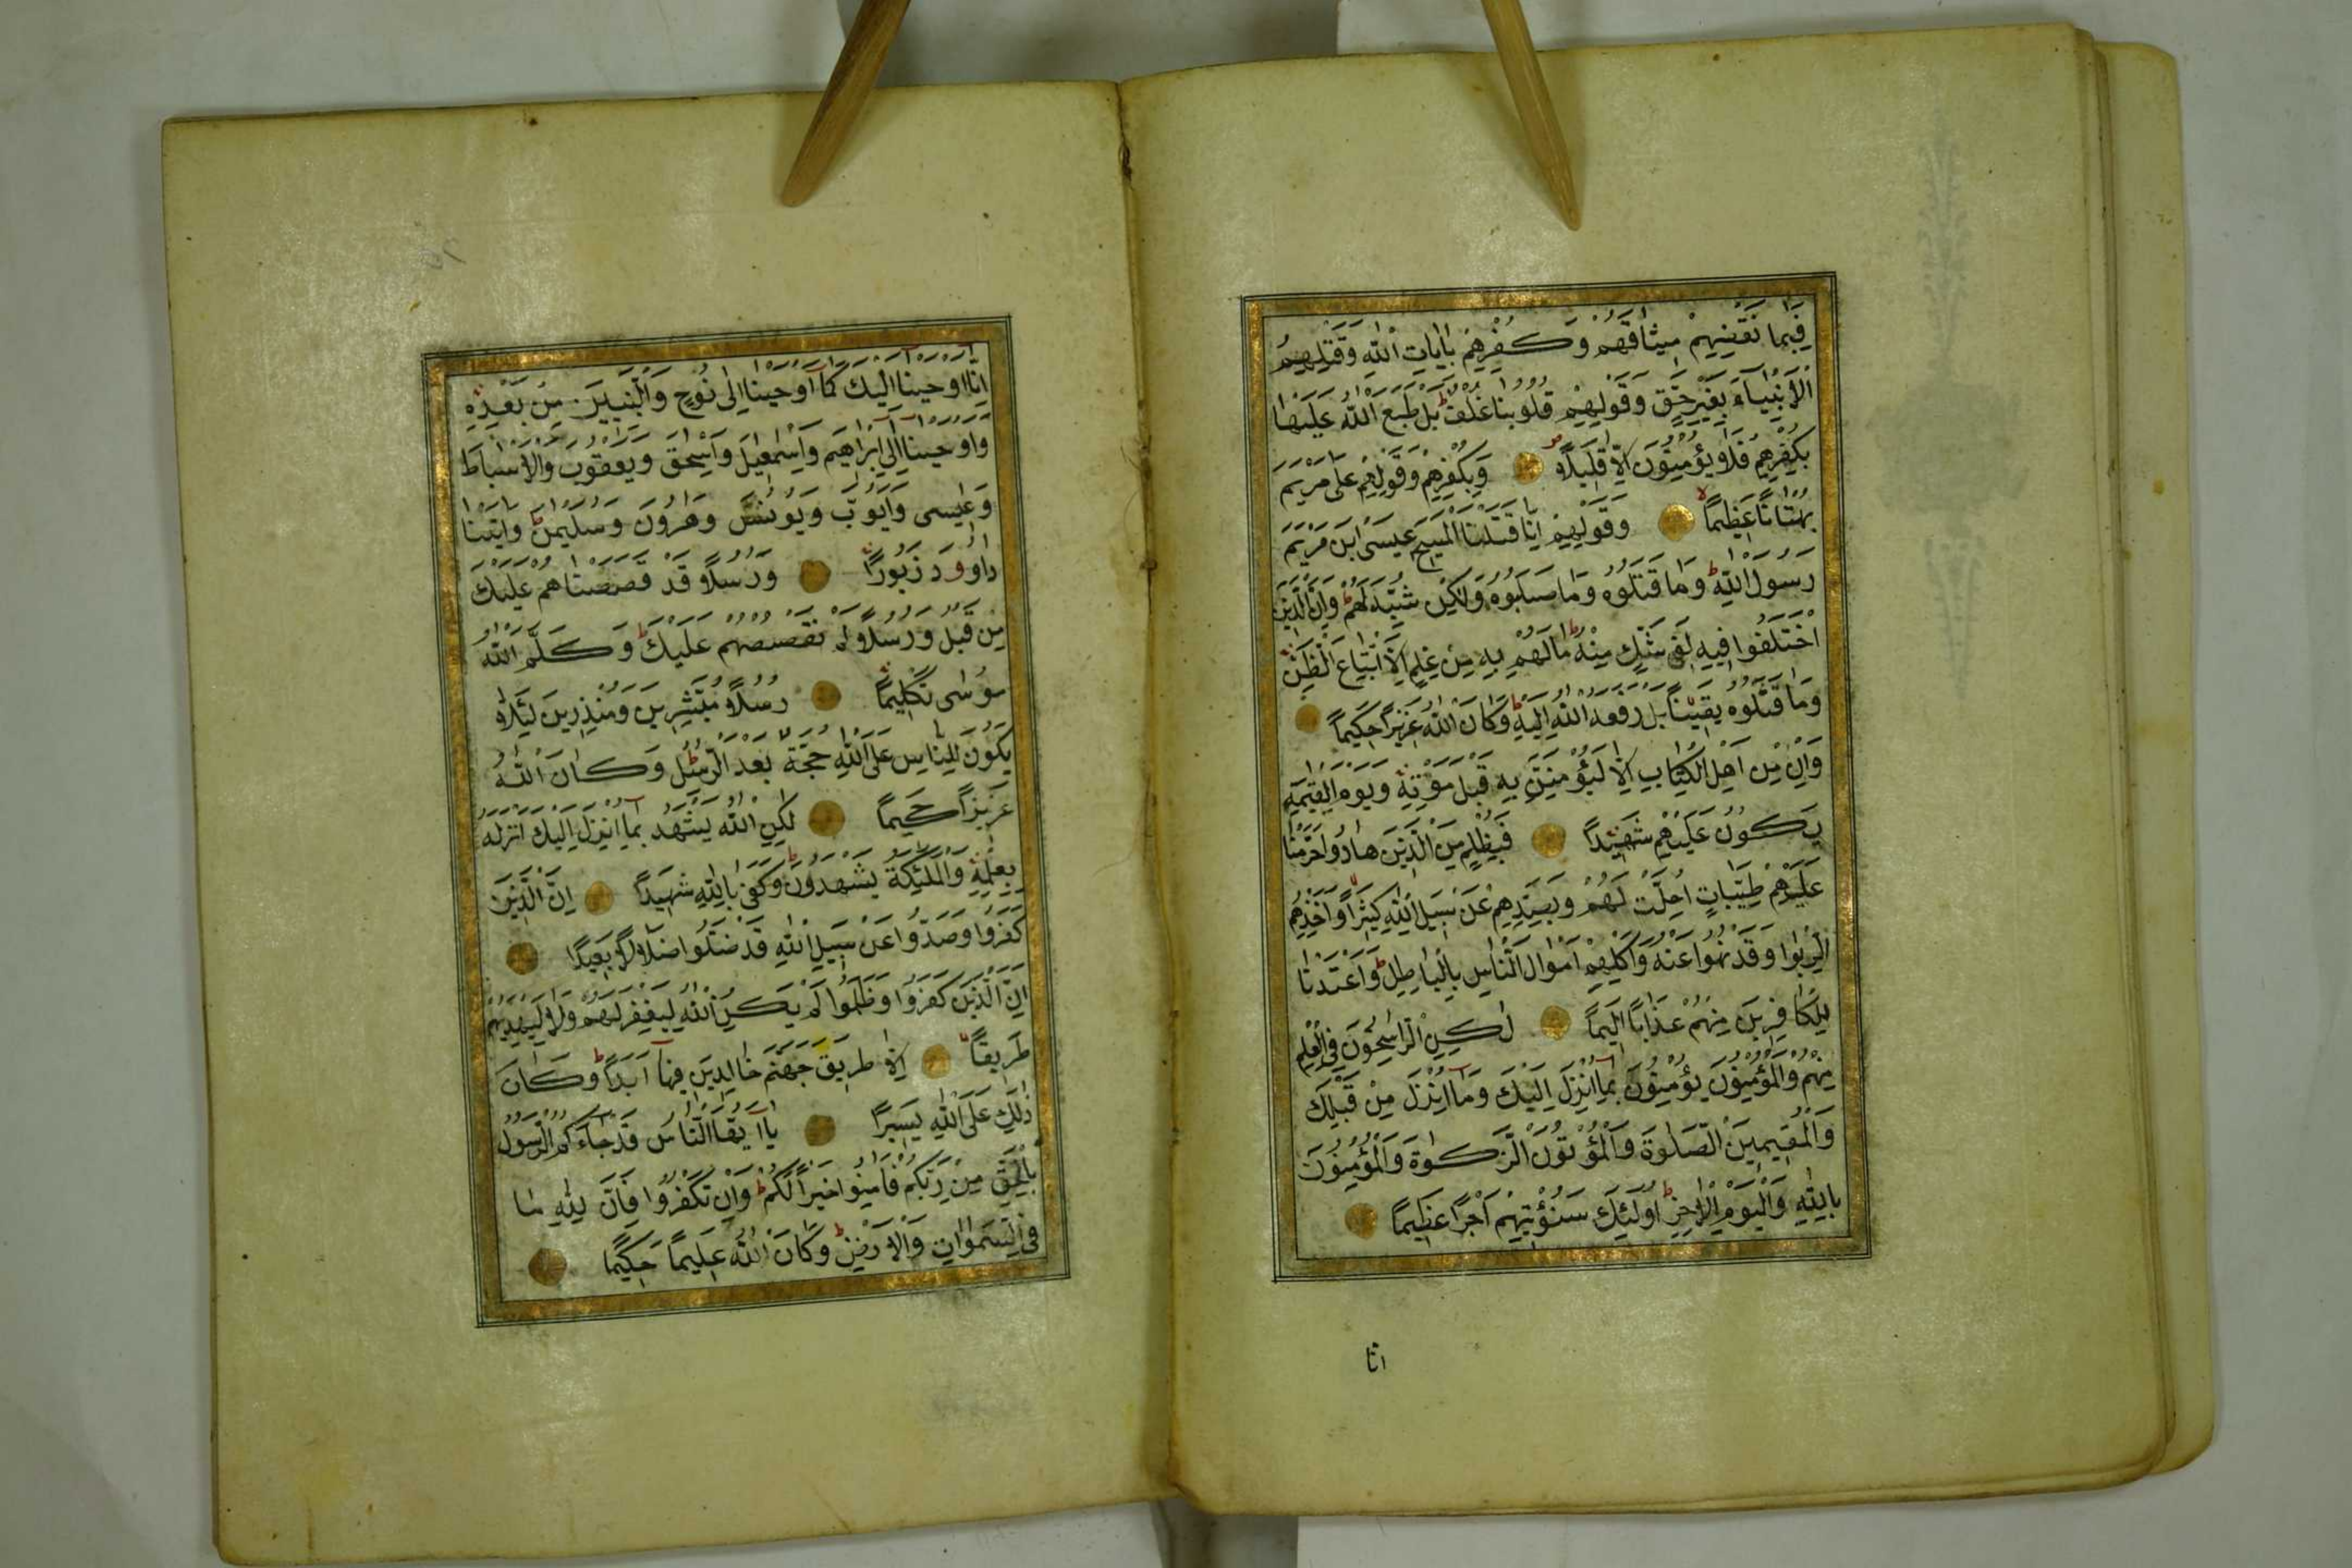 فَبِمَا نَقْضِهِمْ مِيثَاقَهُمْ وَكُفْرِهِمْ بِاٰيَاتِ اللّٰهِ وَقَتْلِهِمُ
الْاَنْبِيَاءَ بِغَيْرِ حَقٍّ وَقَوْلِهِمْ قُلُوبُنَا غُلْفٌ ط بَلْ طَبَعَ اللّٰهُ عَلَيْهَا
بِكُفْرِهِمْ فَلَا يُؤْمِنُونَ اِلَّا قَلِيلًا وَبِكُفْرِهِمْ وَقَوْلِهِمْ عَلٰى مَرْيَمَ
بُهْتَانًا عَظِيمًا لا وَقَوْلِهِمْ اِنَّا قَتَلْنَا الْمَسِيحَ عِيسَى ابْنَ مَرْيَمَ
رَسُولَ اللّٰهِ ط وَمَا قَتَلُوهُ وَمَا صَلَبُوهُ وَلٰكِنْ شُبِّهَ لَهُمْ ط وَاِنَّ الَّذِينَ
اخْتَلَفُوا فِيهِ لَفِى شَكٍّ مِنْهُ ط مَا لَهُمْ بِهِ مِنْ عِلْمٍ اِلَّا اتِّبَاعَ الظَّنِّ
وَمَا قَتَلُوهُ يَقِينًا بَلْ رَفَعَهُ اللّٰهُ اِلَيْهِ ط وَكَانَ اللّٰهُ عَزِيزًا حَكِيمًا
وَاِنْ مِنْ اَهْلِ الْكِتَابِ اِلَّا لَيُؤْمِنَنَّ بِهِ قَبْلَ مَوْتِهِ وَيَوْمَ الْقِيٰمَةِ
يَكُونُ عَلَيْهِمْ شَهِيدًا فَبِظُلْمٍ مِنَ الَّذِينَ هَادُوا حَرَّمْنَا
عَلَيْهِمْ طَيِّبَاتٍ اُحِلَّتْ لَهُمْ وَبِصَدِّهِمْ عَنْ سَبِيلِ اللّٰهِ كَثِيرًا وَاَخْذِهِمُ
الرِّبٰوا وَقَدْ نُهُوا عَنْهُ وَاَكْلِهِمْ اَمْوَالَ النَّاسِ بِالْبَاطِلِ ط وَاَعْتَدْنَا
لِلْكَافِرِينَ مِنْهُمْ عَذَابًا اَلِيمًا لٰكِنِ الرَّاسِخُونَ فِى الْعِلْمِ
مِنْهُمْ وَالْمُؤْمِنُونَ يُؤْمِنُونَ بِمَا اُنْزِلَ اِلَيْكَ وَمَا اُنْزِلَ مِنْ قَبْلِكَ
وَالْمُقِيمِينَ الصَّلٰوةَ وَالْمُؤْتُونَ الزَّكٰوةَ وَالْمُؤْمِنُونَ
بِاللّٰهِ وَالْيَوْمِ الْاٰخِرِ ط اُولٰئِكَ سَنُؤْتِيهِمْ اَجْرًا عَظِيمًا
انا
اِنَّا اَوْحَيْنَا اِلَيْكَ كَمَا اَوْحَيْنَا اِلٰى نُوحٍ وَالنَّبِيِّينَ مِنْ بَعْدِهِ
وَاَوْحَيْنَا اِلٰى اِبْرٰاهِيمَ وَاِسْمٰعِيلَ وَاِسْحٰقَ وَيَعْقُوبَ وَالْاَسْبَاطِ
وَعِيسٰى وَاَيُّوبَ وَيُونُسَ وَهٰرُونَ وَسُلَيْمٰنَ ط وَاٰتَيْنَا
دَاوُودَ زَبُورًا وَرُسُلًا قَدْ قَصَصْنَاهُمْ عَلَيْكَ
مِنْ قَبْلُ وَرُسُلًا لَمْ نَقْصُصْهُمْ عَلَيْكَ ط وَكَلَّمَ اللّٰهُ
مُوسٰى تَكْلِيمًا رُسُلًا مُبَشِّرِينَ وَمُنْذِرِينَ لِئَلَّا
يَكُونَ لِلنَّاسِ عَلَى اللّٰهِ حُجَّةٌ بَعْدَ الرُّسُلِ ط وَكَانَ اللّٰهُ
عَزِيزًا حَكِيمًا لٰكِنِ اللّٰهُ يَشْهَدُ بِمَا اَنْزَلَ اِلَيْكَ اَنْزَلَهُ
بِعِلْمِهِ وَالْمَلٰئِكَةُ يَشْهَدُونَ ط وَكَفٰى بِاللّٰهِ شَهِيدًا اِنَّ الَّذِينَ
كَفَرُوا وَصَدُّوا عَنْ سَبِيلِ اللّٰهِ قَدْ ضَلُّوا ضَلَالًا بَعِيدًا
اِنَّ الَّذِينَ كَفَرُوا وَظَلَمُوا لَمْ يَكُنِ اللّٰهُ لِيَغْفِرَ لَهُمْ وَلَا لِيَهْدِيَهُمْ
طَرِيقًا اِلَّا طَرِيقَ جَهَنَّمَ خَالِدِينَ فِيهَا اَبَدًا ط وَكَانَ
ذٰلِكَ عَلَى اللّٰهِ يَسِيرًا يَا اَيُّهَا النَّاسُ قَدْ جَاءَكُمُ الرَّسُولُ
بِالْحَقِّ مِنْ رَبِّكُمْ فَاٰمِنُوا خَيْرًا لَكُمْ ط وَاِنْ تَكْفُرُوا فَاِنَّ لِلّٰهِ مَا
فِى السَّمٰوَاتِ وَالْاَرْضِ ط وَكَانَ اللّٰهُ عَلِيمًا حَكِيمًا